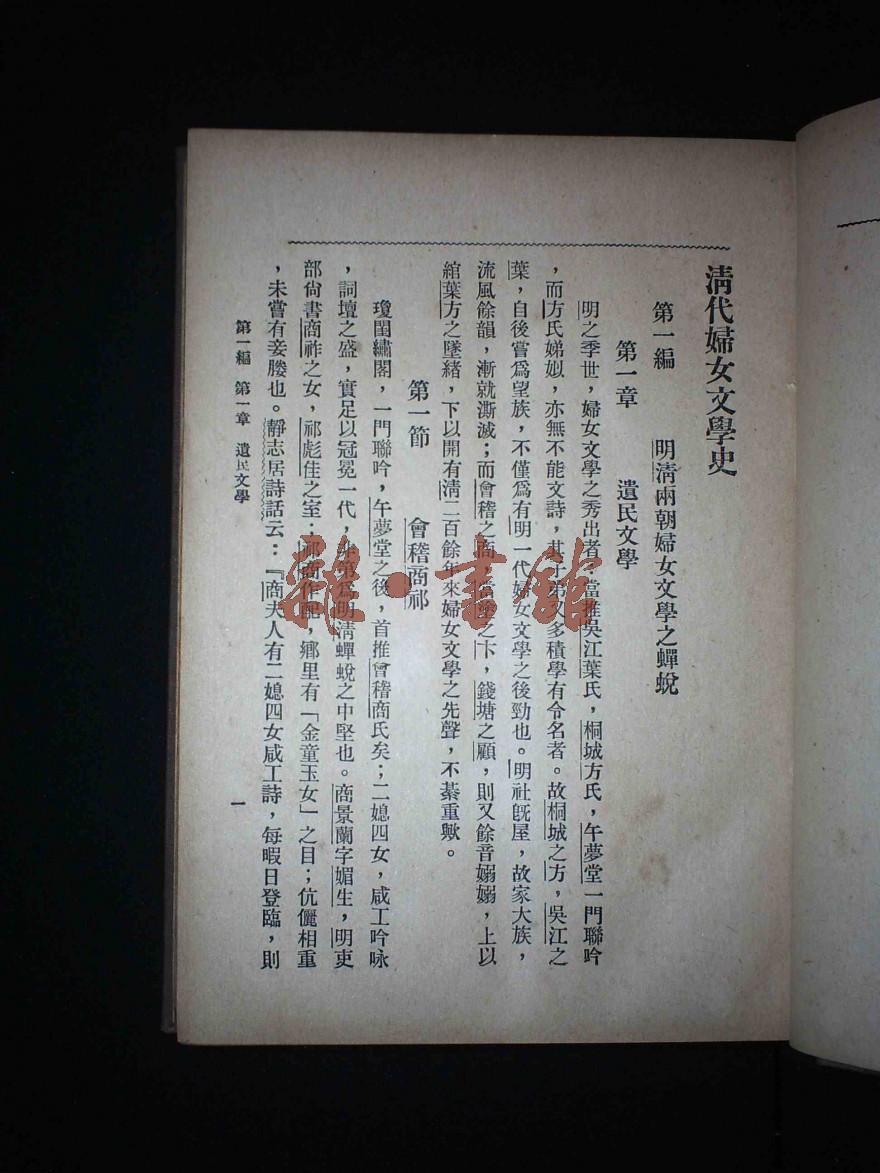 清代婦女文學史
第一編 明清兩朝婦女文學之蟬蛻
第一章 遺民文學
明之季世，婦女文學之秀出者，當推吳江葉氏，桐城方氏，午夢堂一門聯吟
，而方氏娣姒，亦無不能文詩，其子弟又多積學有令名者。故桐城之方，吳江之
葉，自後嘗爲望族，不僅爲有明一代婦女文學之後勁也。明社旣屋，故家大族，
流風餘韻，漸就澌滅；而會稽之商，當塗之卞，錢塘之顧，則又餘音嫋嫋，上以
綰葉方之墜緒，下以開有清二百餘年來婦女文學之先聲，不綦重歟。
第一節 會稽商祁
瓊閨繡閣，一門聯吟，午夢堂之後，首推會稽商氏矣；二媳四女，咸工吟咏
，詞壇之盛，實足以冠冕一代，非第爲明清蟬蛻之中堅也。商景蘭字媚生，明吏
部尙書商祚之女，祁彪佳之室；祁商作配，鄉里有「金童玉女」之目；伉儷相重
，未嘗有妾媵也。靜志居詩話云：「商夫人有二媳四女咸工詩，每暇日登臨，則
第一編 第一章 遺民文學
一
雜·書館